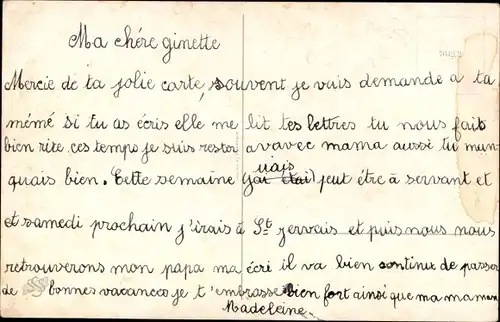 Ma chére ginette
Mercie de ta jolie carte, souvent je vais demande a ta
mémé si tu as écris elle me lit tes lettres tu nous fait
bien rire, ces tempo je suis rester avavec mama aussi tu man
quais bien. Cette semaine (j'ai étai) vais peut étre à servant et
et samedi prochain j'irais à St gervais et puis nous nous
retrouverons mon papa ma écri il va bien continue de passer
de bonnes vacances je t'embrasse bien fort ainsi que ma maman
Madeleine.